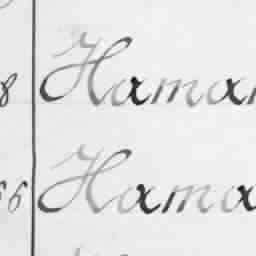 8 Haman
56 Hama